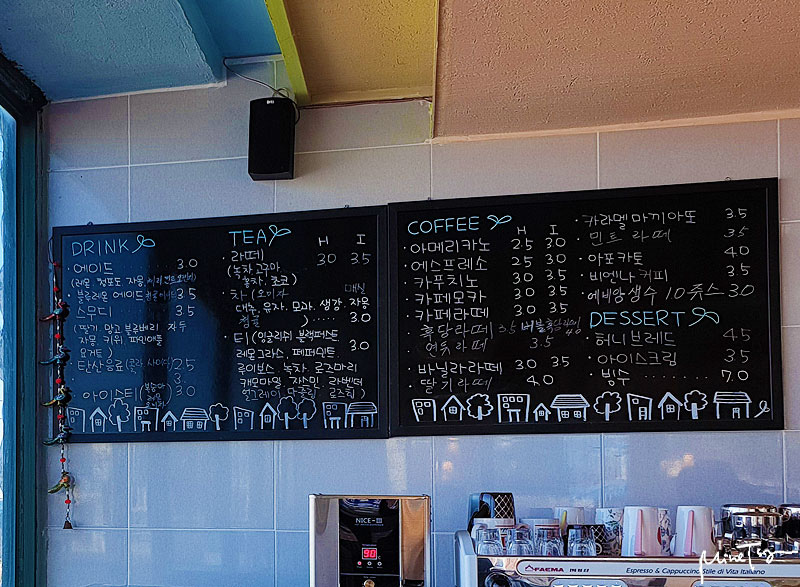 DRINK
에이드 3.0
(레몬 청포도 자몽
블루레몬 에이드 3.5
스무디 3.5
(딸기 망고 블루베리 자두
자몽 키위 파인애플
요거트)
탄산음료(콜라 사이다) 2.5
3.0
아이스티( ) 3.0
TEA H I
라떼 3.0 3.5
(녹차 고구마
홍차, 초코)
차(오미자 매실
대추, 유자, 모과, 생강, 자몽
) 3.0
티(잉글리쉬 블랙퍼스트
레몬그라스, 페퍼민트 3.0
루이보스, 녹차, 로즈마리
캐모마일, 자스민, 라벤더
얼그레이, 로즈힙)
COFFEE H I
아메리카노 2.5 3.0
에스프레소 2.5 3.0
카푸치노 3.0 3.5
카페모카 3.0 3.5
카페라떼 3.0 3.5
흑당라떼 3.5 버블흑당라떼 4.0
연유라떼 3.5
바닐라라떼 3.0 3.5
딸기라떼 4.0
카라멜마끼아또 3.5
민트라떼 3.5
아포카토 4.0
비엔나커피 3.5
에비앙생수 1.0 쥬스 3.0
DESSERT
허니브레드 4.5
아이스크림 3.5
빙수 7.0
NICE-III
90
FAEMA
Espresso & Cappuccino Stile di Vita Italiano